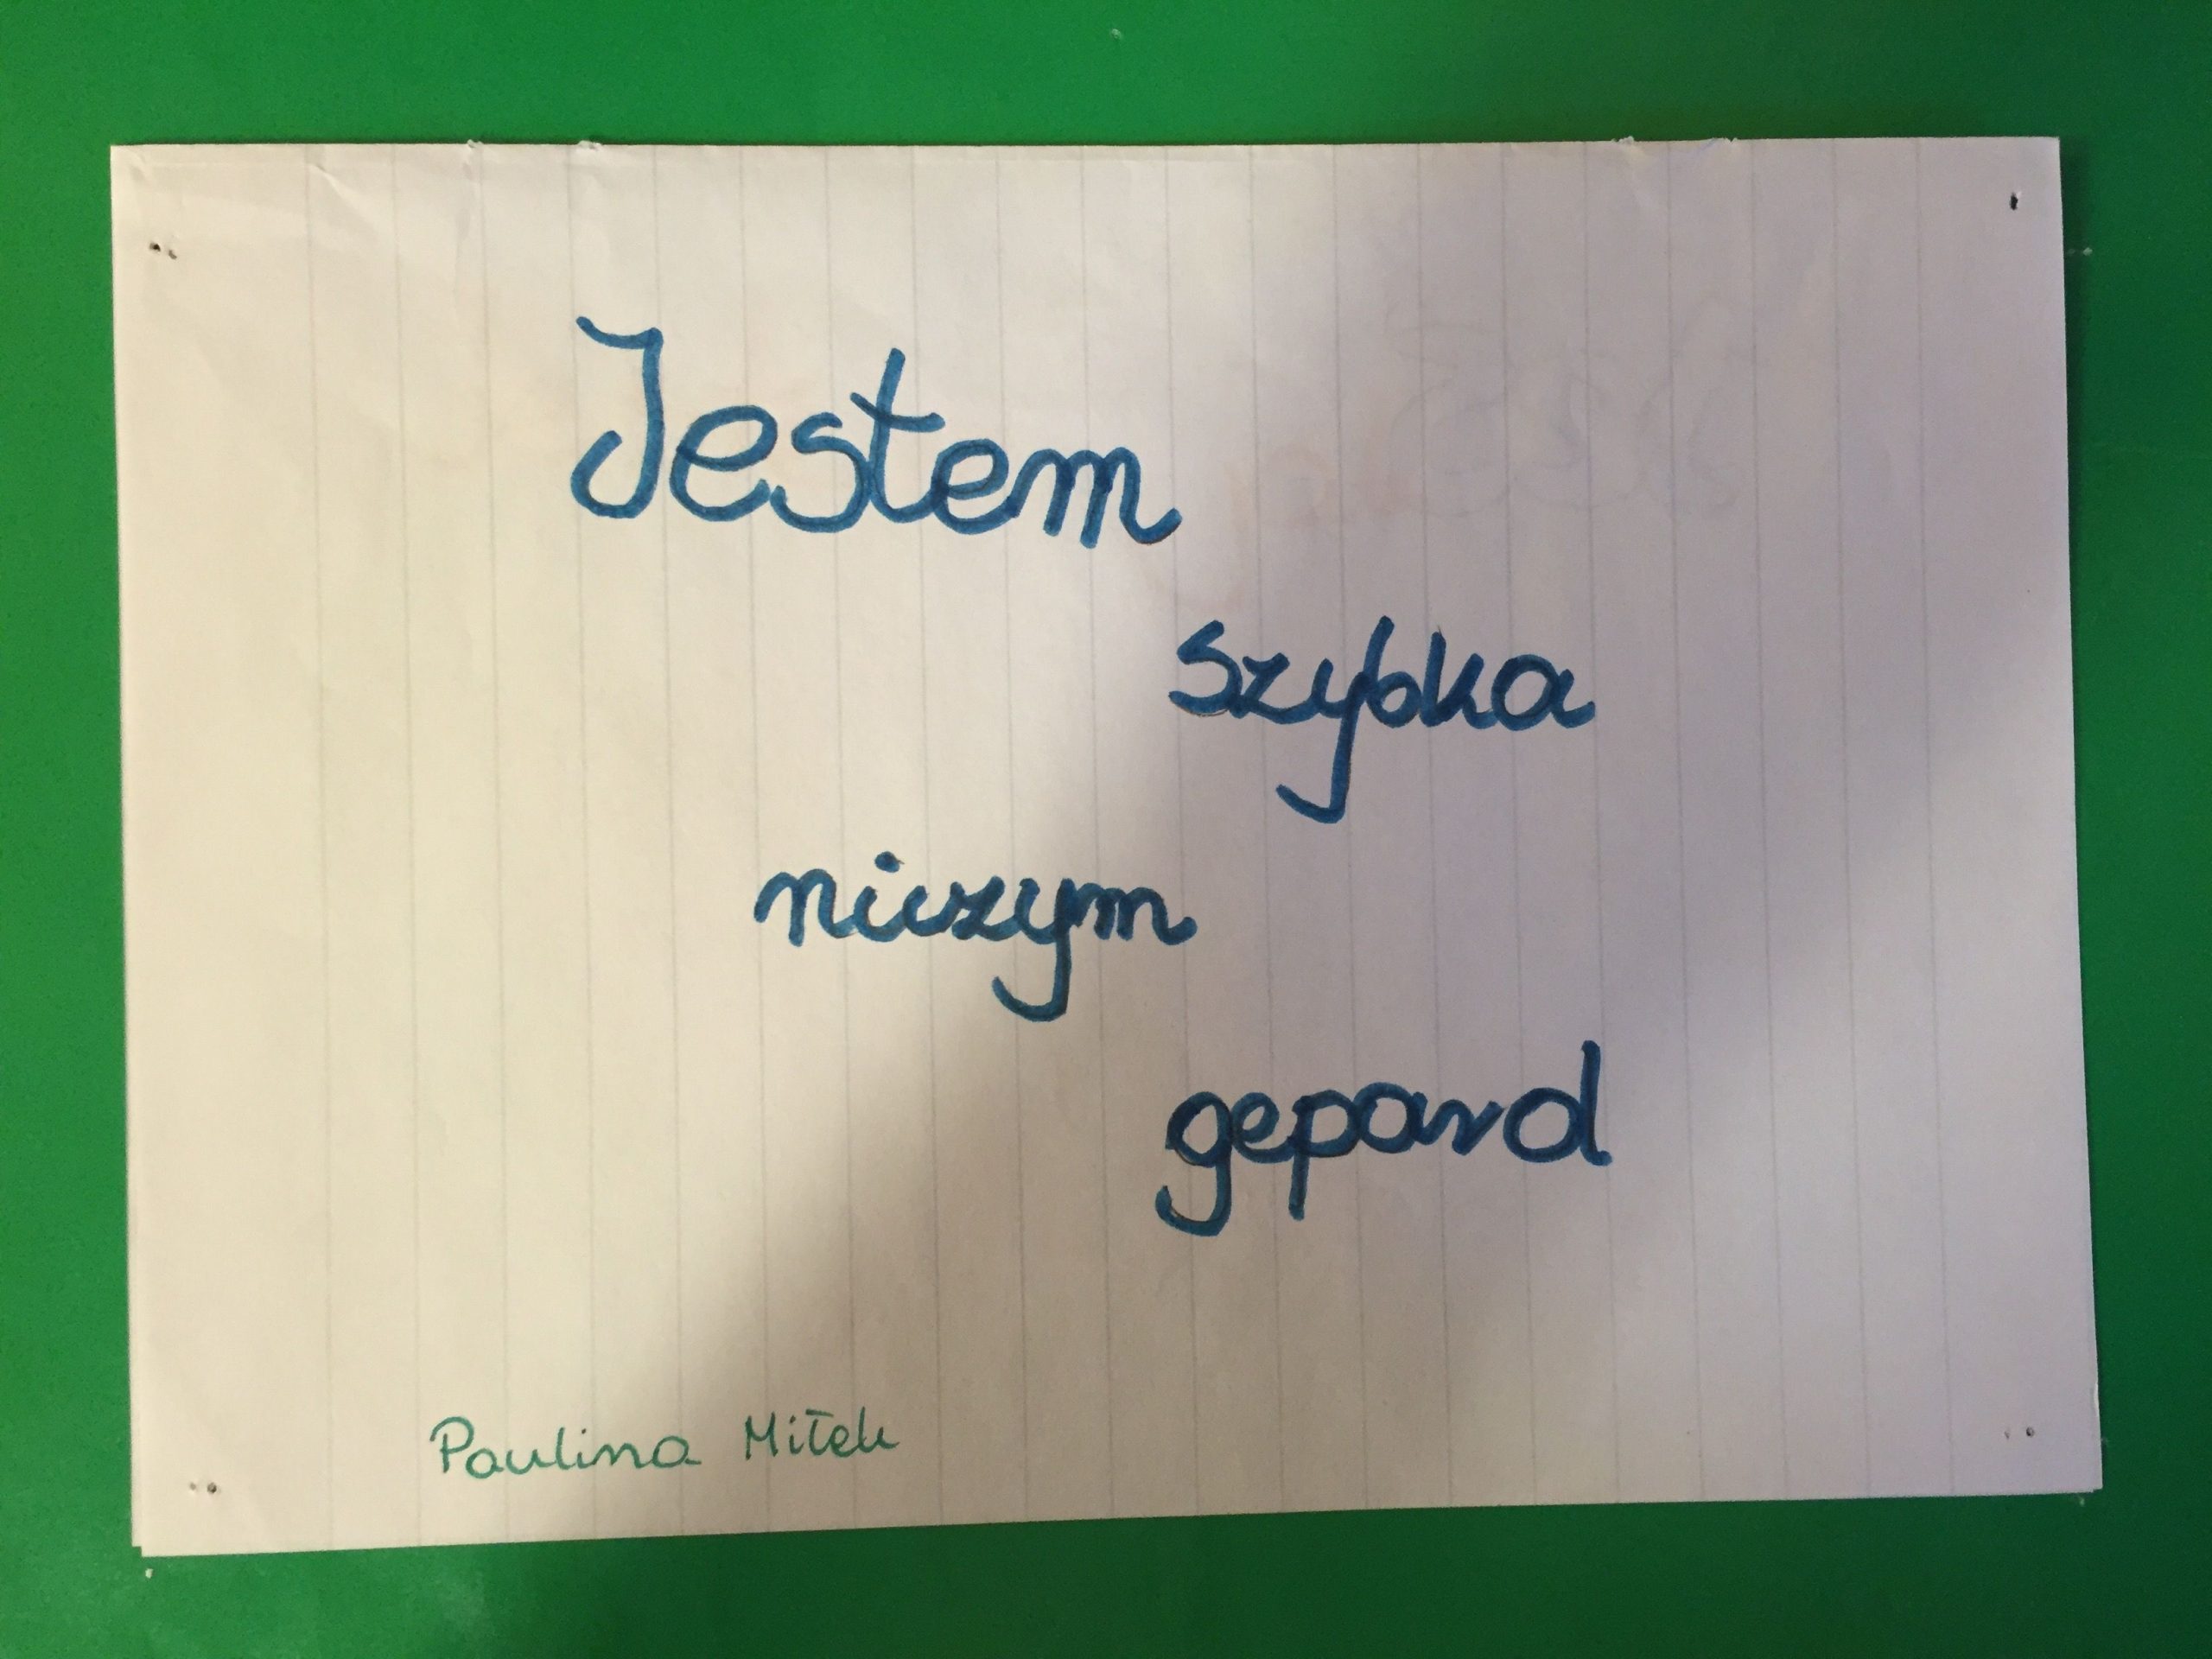 Jestem
szybka
niczym
gepard
Paulina Miłek